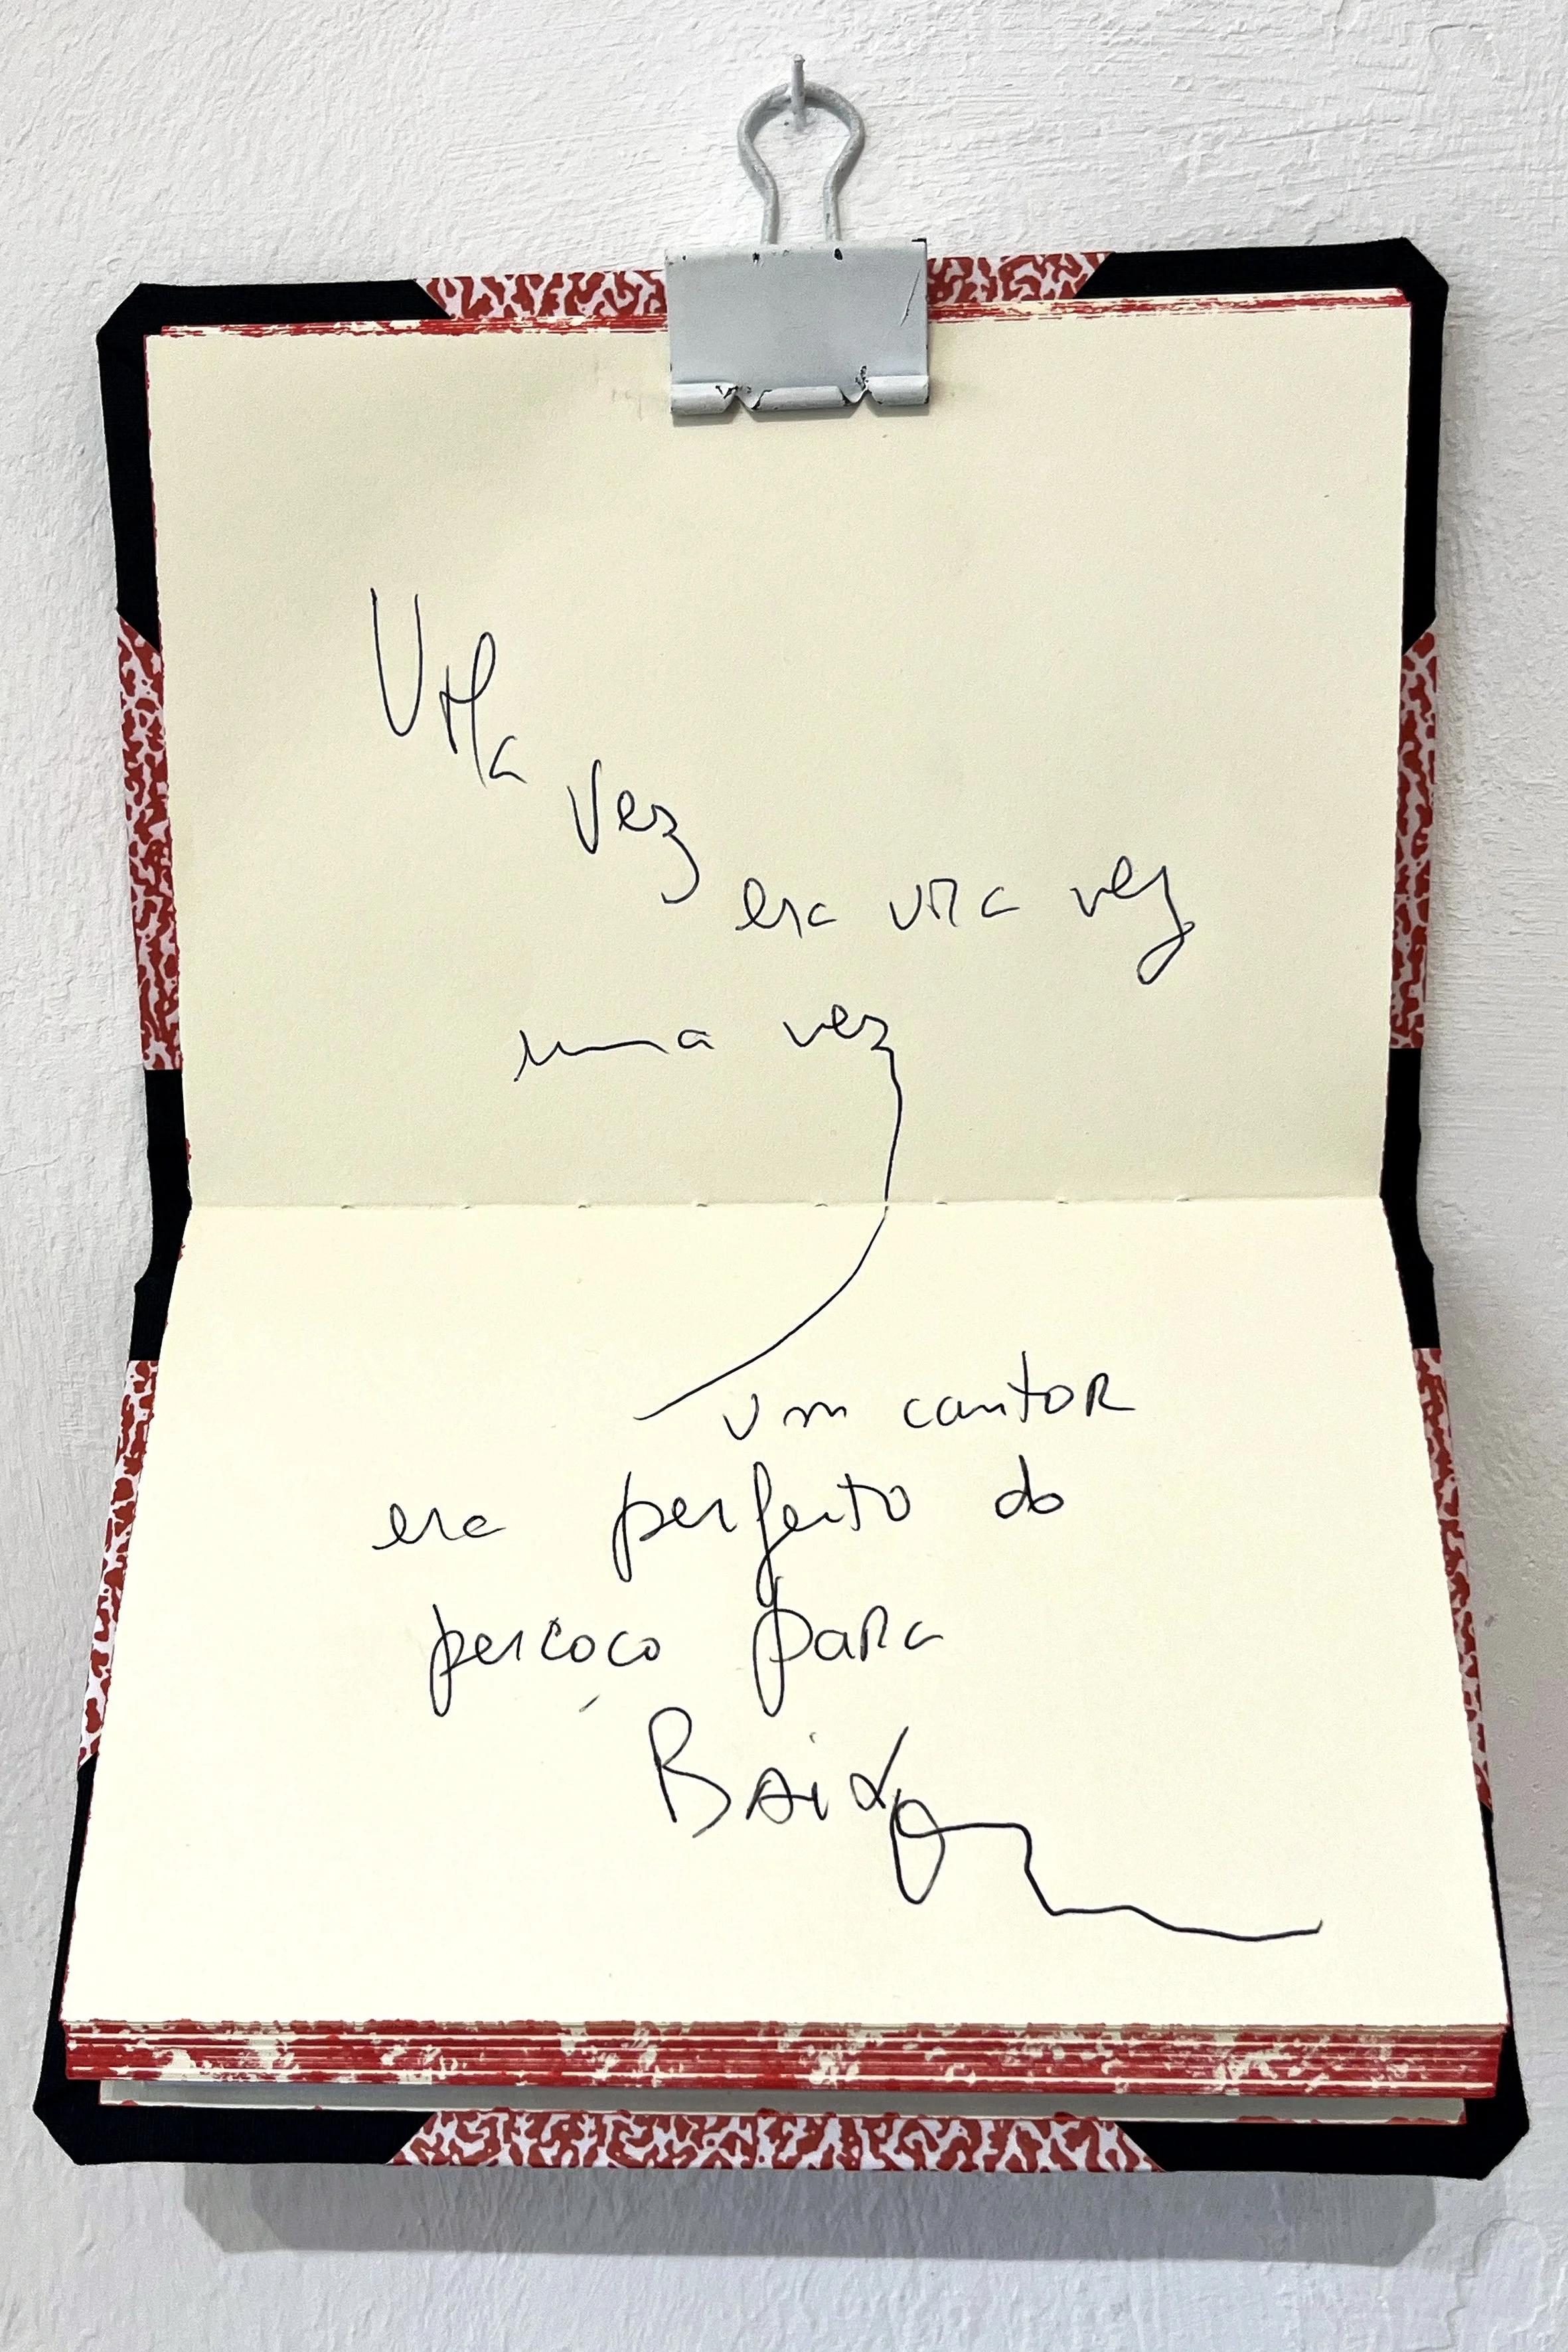 Uma
vez
era uma vez
uma vez
um cantor
era perfeito do
percoço para
Baixo